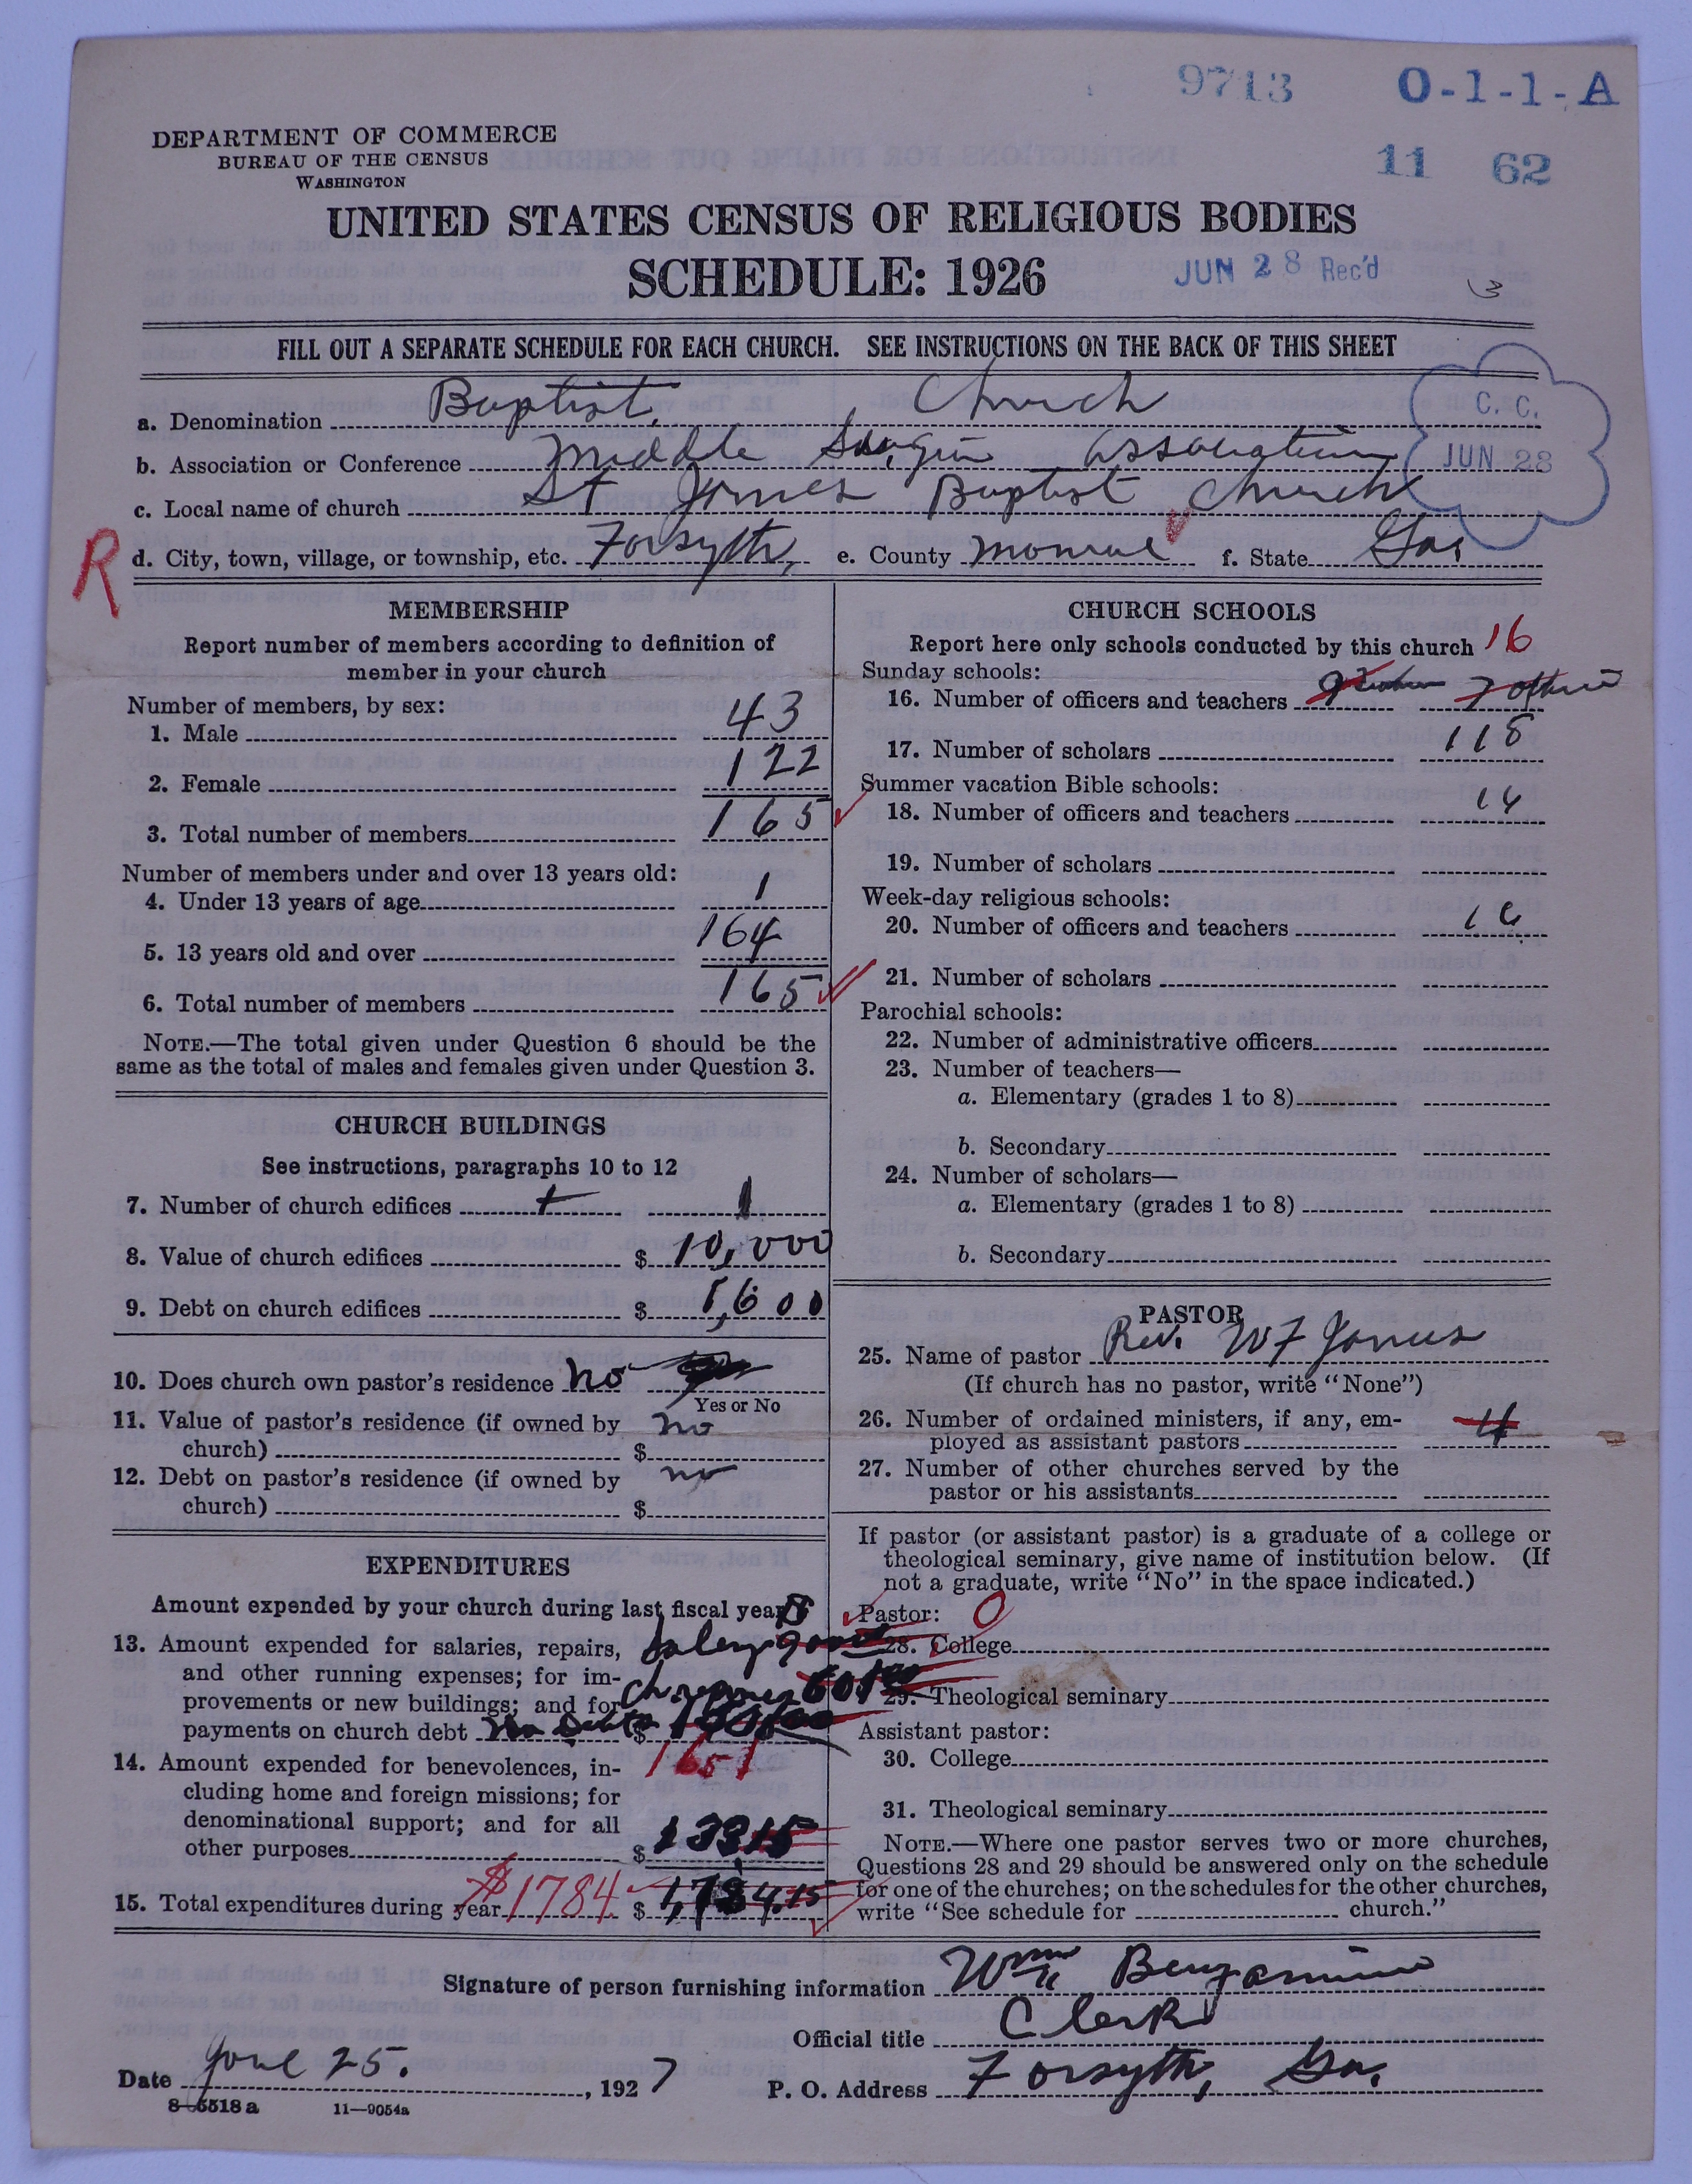 9713 O-1-1-A
11 62
DEPARTMENT OF COMMERCE
BUREAU OF THE CENSUS
WASHINGTON
UNITED STATES CENSUS OF RELIGIOUS BODIES
SCHEDULE: 1926
JUN 28 Rec'd
3
FILL OUT A SEPARATE SCHEDULE FOR EACH CHURCH. SEE INSTRUCTIONS ON THE BACK OF THIS SHEET
C. C.
JUN 28
a. Denomination Baptist, Church
b. Association or Conference Middle Association
c. Local name of church St James Baptist Church
R
d. City, town, village, or township, etc. Forsyth, e. County Monroe f. State Ga.
MEMBERSHIP
Report number of members according to definition of
member in your church
Number of members, by sex:
1. Male 43
2. Female 122
3. Total number of members 165
Number of members under and over 13 years old:
4. Under 13 years of age 1
5. 13 years old and over 164
6. Total number of members 165
NOTE.—The total given under Question 6 should be the
same as the total of males and females given under Question 3.
CHURCH BUILDINGS
See instructions, paragraphs 10 to 12
7. Number of church edifices 1
8. Value of church edifices $ 10,000
9. Debt on church edifices $
10. Does church own pastor's residence no
Yes or No
11. Value of pastor's residence (if owned by no
church) $
12. Debt on pastor's residence (if owned by no
church) $
EXPENDITURES
Amount expended by your church during last fiscal year
13. Amount expended for salaries, repairs, Salery
and other running expenses; for im-
provements or new buildings; and for
payments on church debt $
1651
14. Amount expended for benevolences, in-
cluding home and foreign missions; for
denominational support; and for all
other purposes $ 133 15
15. Total expenditures during year $1784 $ 1,784.15
CHURCH SCHOOLS
Report here only schools conducted by this church 16
Sunday schools:
16. Number of officers and teachers 7 others
17. Number of scholars 118
Summer vacation Bible schools:
18. Number of officers and teachers 14
19. Number of scholars
Week-day religious schools:
20. Number of officers and teachers
21. Number of scholars
Parochial schools:
22. Number of administrative officers
23. Number of teachers—
a. Elementary (grades 1 to 8)
b. Secondary
24. Number of scholars—
a. Elementary (grades 1 to 8)
b. Secondary
PASTOR
25. Name of pastor Rev. W F Jones
(If church has no pastor, write "None")
26. Number of ordained ministers, if any, em-
ployed as assistant pastors 4
27. Number of other churches served by the
pastor or his assistants
If pastor (or assistant pastor) is a graduate of a college or
theological seminary, give name of institution below. (If
not a graduate, write "No" in the space indicated.)
Pastor: 0
28. College
29. Theological seminary
Assistant pastor:
30. College
31. Theological seminary
NOTE.—Where one pastor serves two or more churches,
Questions 28 and 29 should be answered only on the schedule
for one of the churches; on the schedules for the other churches,
write "See schedule for church."
Signature of person furnishing information Wm Benjamin
Official title Clerk
Date June 25. , 1927 P. O. Address Forsyth, Ga.
8-6518a 11—9054a